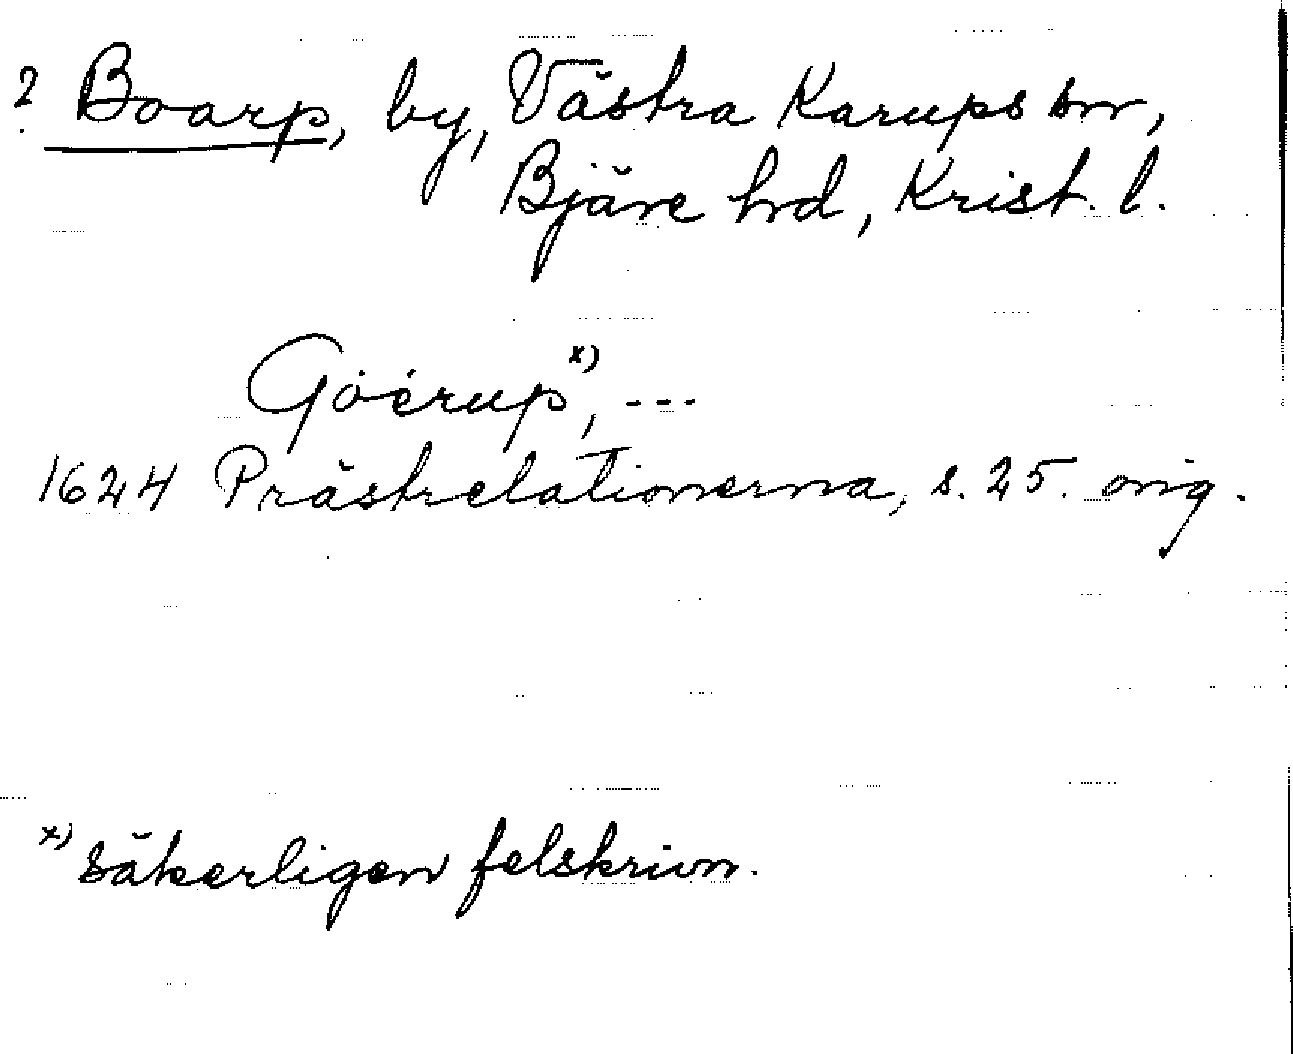 ? Boarp, by, Västra Karups sn,
Bjäre hd, Krist. l.
Góérup x), ---
1624 Prästrelationerna, s. 25. orig.
x) säkerligen felskrivn.